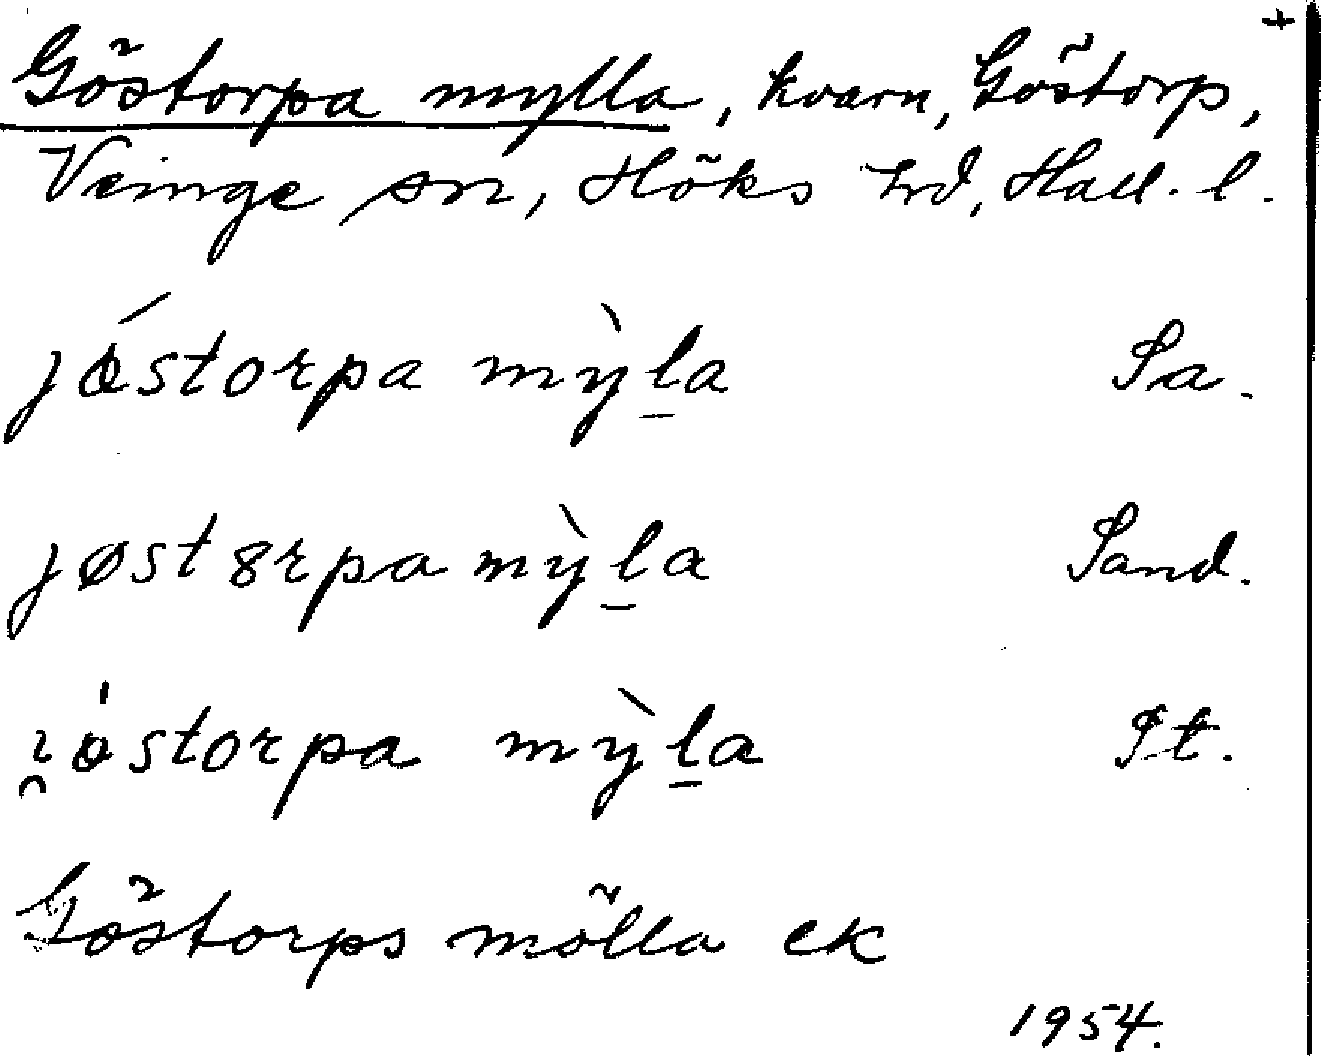 +
Göstorpa mylla, kvarn, Göstorp,
Veinge sn, Höks hrd, Hall. l.
jǿstorpa mỳl̠a Sa.
jøst8rpa mỳl̠a Sand.
i̯ǿstorpa mỳl̠a St.
Göstorps mölla ek
1954.